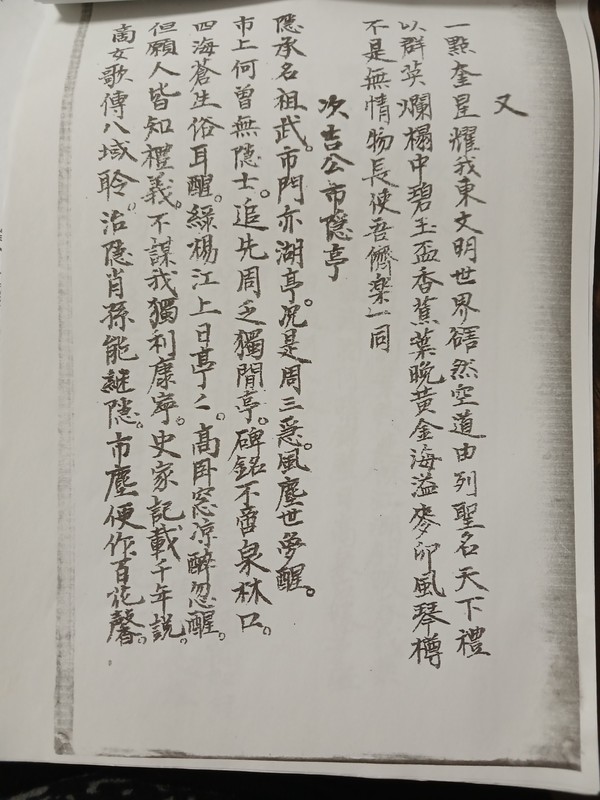 又
一點奎星耀我東文明世界豁然空道由列聖名天下禮
以群英爛榻中碧玉盃香蕉葉晚黃金海溢麥卯風琴樽
不是無情物長使吾儕樂一同
次吉公市隱亭
隱承名祖武。市門亦湖亭。況是周三惡。風塵世夢醒。
市上何曾無隱士。追先周乏獨閒亭。碑銘不啻泉林口。
四海蒼生俗耳醒。綠楊江上日亭〻。高卧窓凉醉忽醒。
但願人皆知禮義。不謀我獨利康寧。史家記載千年說。
商女歌傳八域聆。治隱肖孫能継隱。市塵便作百花馨。